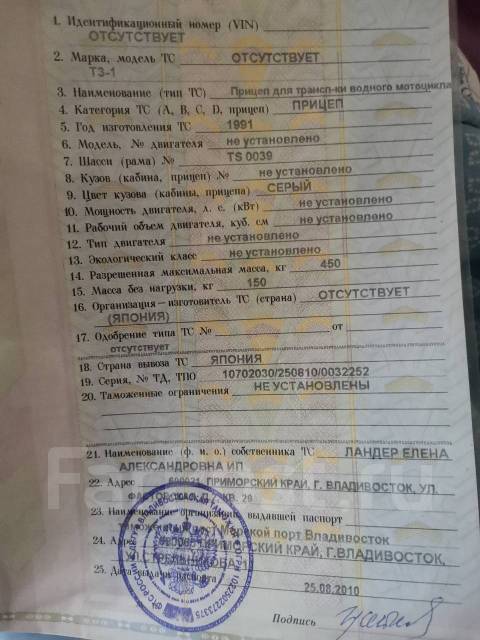 1. Идентификационный номер (VIN)
ОТСУТСТВУЕТ
2. Марка, модель ТС ОТСУТСТВУЕТ
ТЗ-1
3. Наименование (тип ТС) Прицеп для трансп-ки водного мотоцикла
4. Категория ТС (А, В, С, D, прицеп) ПРИЦЕП
5. Год изготовления ТС 1991
6. Модель, № двигателя не установлено
7. Шасси (рама) № TS 0039
8. Кузов (кабина, прицеп) № не установлено
9. Цвет кузова (кабины, прицепа) СЕРЫЙ
10. Мощность двигателя, л. с. (кВт) не установлено
11. Рабочий объем двигателя, куб. см не установлено
12. Тип двигателя не установлено
13. Экологический класс не установлено
14. Разрешенная максимальная масса, кг 450
15. Масса без нагрузки, кг 150
16. Организация – изготовитель ТС (страна) ОТСУТСТВУЕТ
(ЯПОНИЯ)
17. Одобрение типа ТС № от
отсутствует
18. Страна вывоза ТС ЯПОНИЯ
19. Серия, № ТД, ТПО 10702030/250810/0032252
20. Таможенные ограничения НЕ УСТАНОВЛЕНЫ
21. Наименование (ф. и. о.) собственника ТС ЛАНДЕР ЕЛЕНА
АЛЕКСАНДРОВНА ИП
22. Адрес ПРИМОРСКИЙ КРАЙ, Г. ВЛАДИВОСТОК, УЛ.
КВ. 29
23. Наименование организации, выдавшей паспорт
Морской порт Владивосток
24. Адрес КРАЙ, Г.ВЛАДИВОСТОК,
УЛ.СТРЕЛЬНИКОВА
25. Дата выдачи паспорта
25.08.2010
Подпись